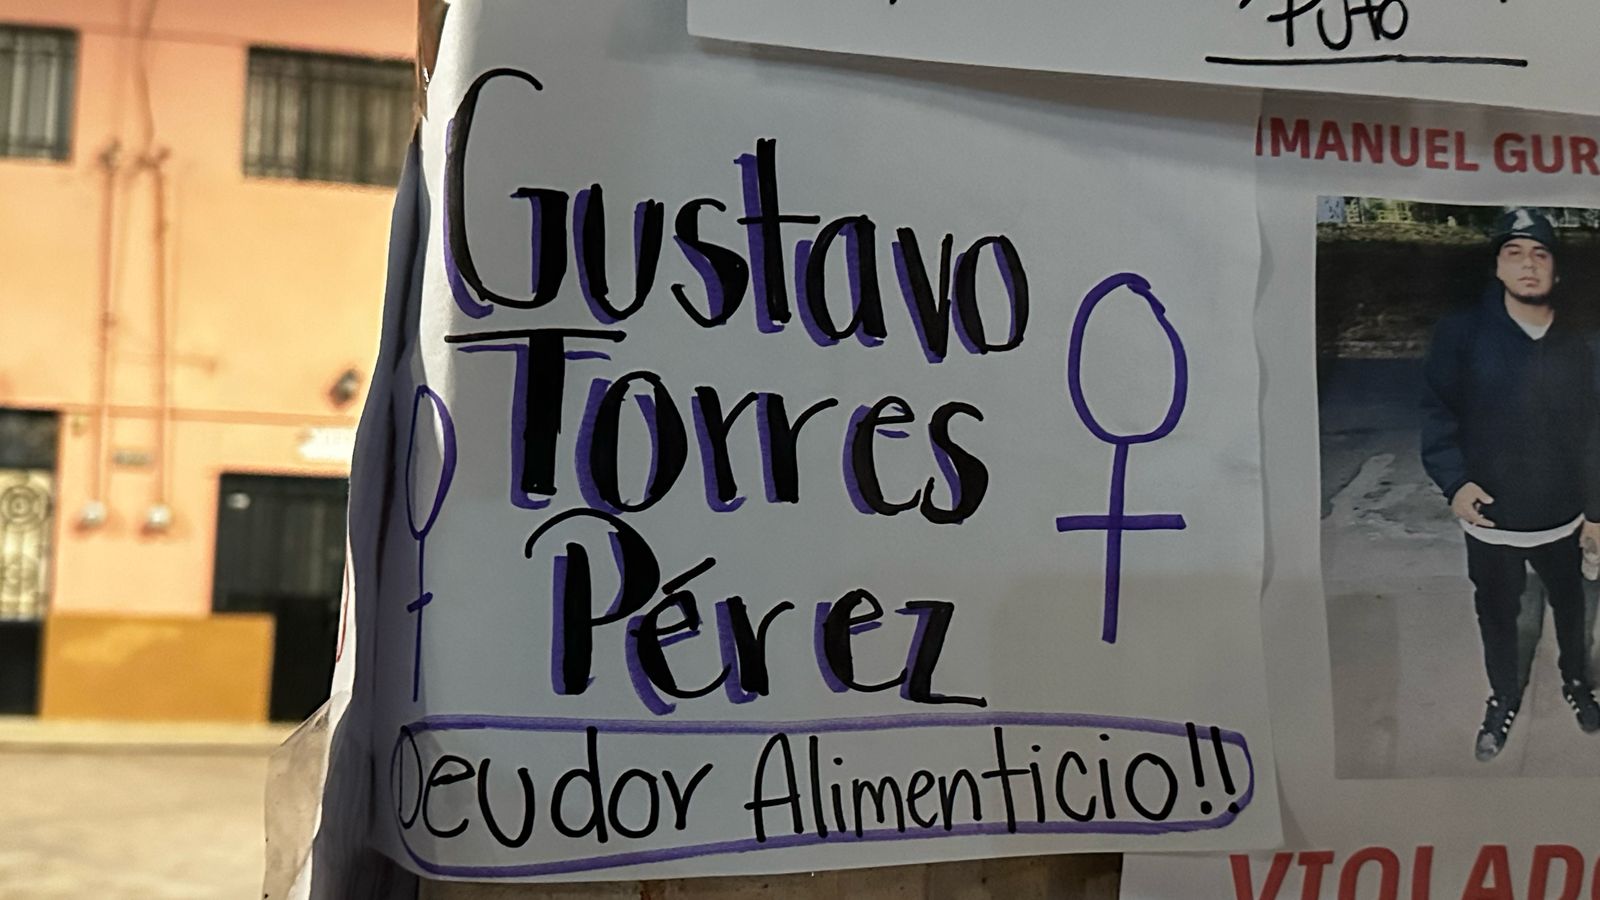 Puto
Gustavo
Torres
Pérez
Deudor Alimenticio!!
MANUEL GUR
VIOLADO